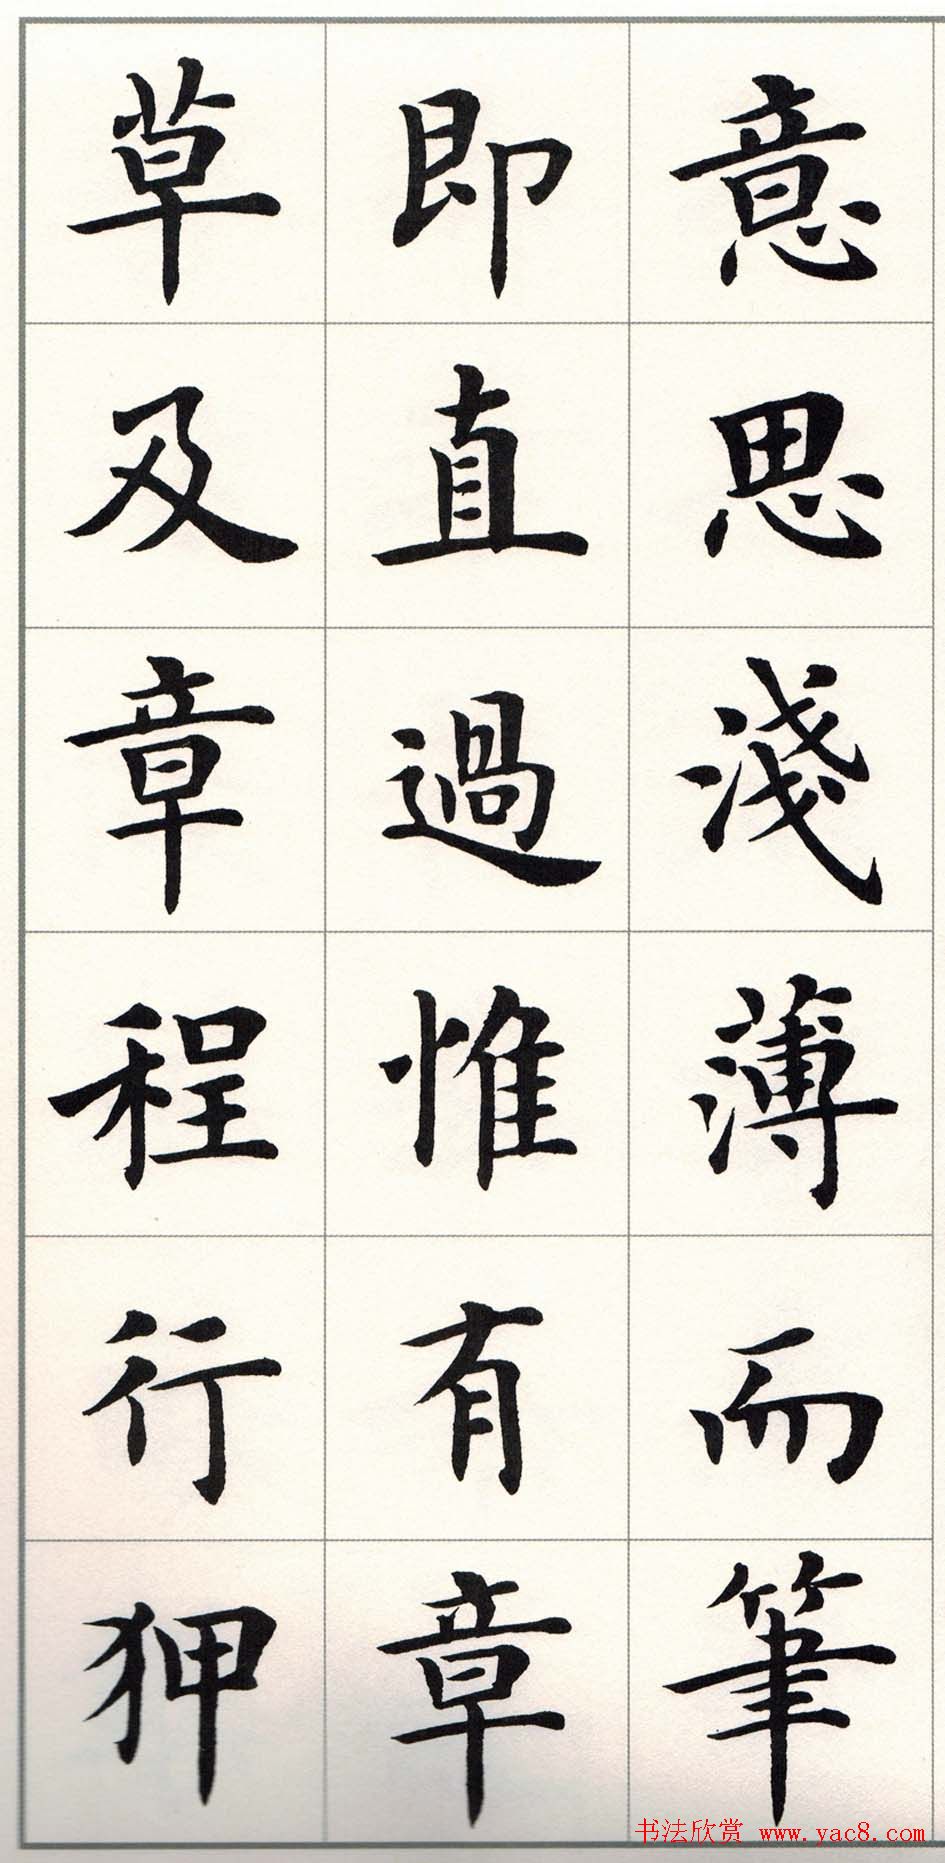 意思淺薄而筆
即直過惟有章
草及章程行狎
书法欣赏 www.yac8.com